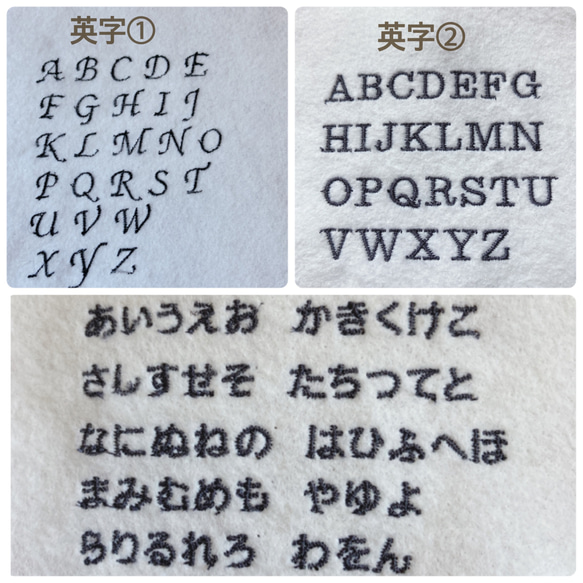 英字①
A B C D E
F G H I J
K L M N O
P Q R S T
U V W
X Y Z
英字②
ABCDEFG
HIJKLMN
OPQRSTU
VWXYZ
あいうえお かきくけこ
さしすせそ たちつてと
なにぬねの はひふへほ
まみむめも やゆよ
らりるれろ わをん